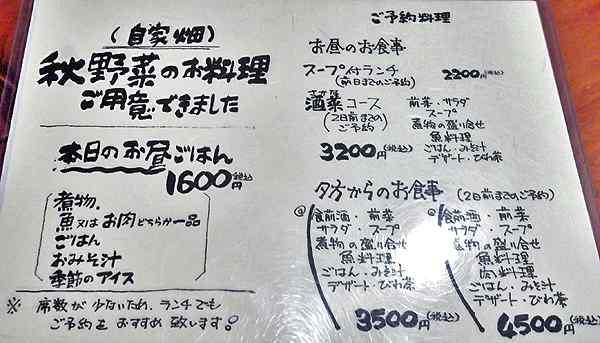 (自家畑)
秋野菜のお料理
ご用意できました
本日のお昼ごはん
1600円(税込)
煮物、
魚又はお肉どちらか一品
ごはん
おみそ汁
季節のアイス
※ 席数が少ないため、ランチでも
ご予約をおすすめ致します。
ご予約料理
お昼のお食事
スープ付ランチ 2200円(税込)
(前日までのご予約)
酒菜コース
(2日前までの
ご予約)
3200円(税込)
前菜・サラダ
スープ
煮物の盛り合せ
魚料理
ごはん・みそ汁
デザート・びわ茶
夕方からのお食事 (2日前までのご予約)
食前酒・前菜
サラダ・スープ
煮物の盛り合せ
魚料理
ごはん・みそ汁
デザート・びわ茶
3500円(税込)
食前酒・前菜
サラダ・スープ
煮物の盛り合せ
魚料理
肉料理
ごはん・みそ汁
デザート・びわ茶
4500円(税込)